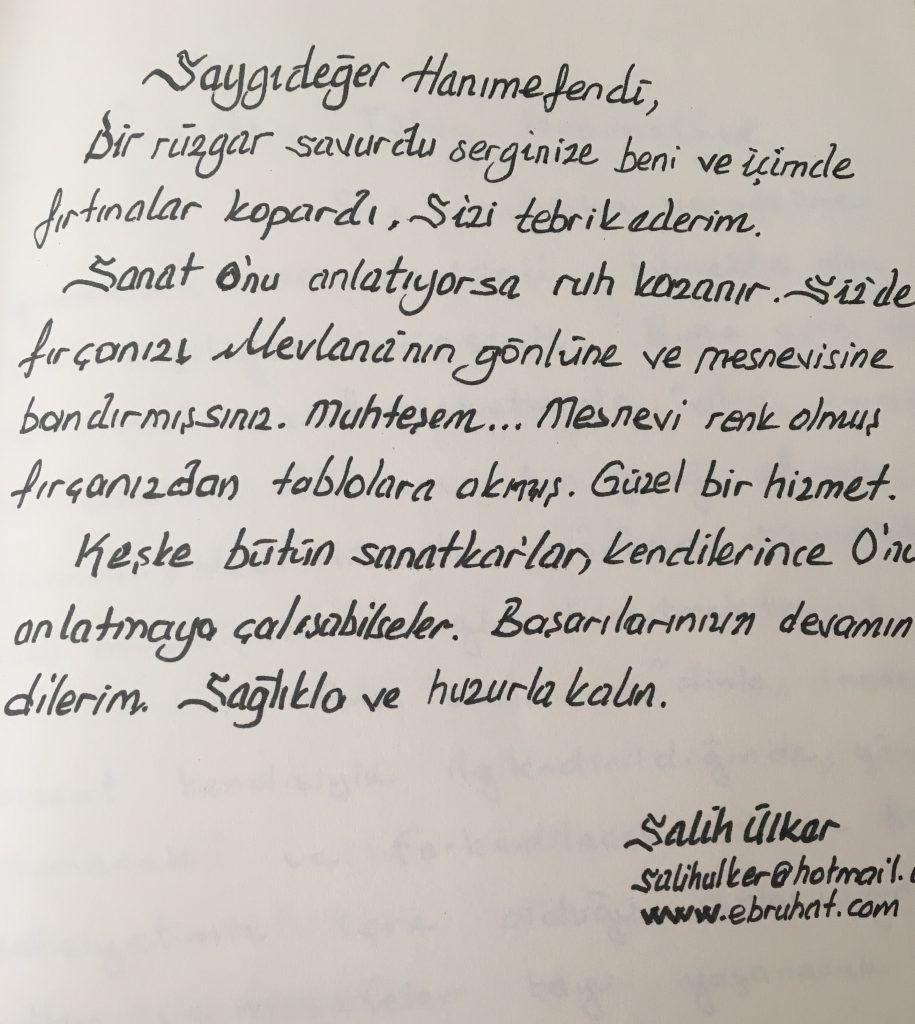 Saygıdeğer Hanımefendi,
Bir rüzgar savurdu serginize beni ve içimde
fırtınalar kopardı, Sizi tebrik ederim.
Sanat O'nu anlatıyorsa ruh kazanır. Siz'de
fırçanızı Mevlana'nın gönlüne ve mesnevisine
bandırmışsınız. Muhteşem... Mesnevi renk olmuş
fırçanızdan tablolara akmış. Güzel bir hizmet.
Keşke bütün sanatkarlar, kendilerince O'nu
anlatmaya çalışabilseler. Başarılarınızın devamın
dilerim. Sağlıkla ve huzurla kalın.
Salih Ülker
salihulker@hotmail.
www.ebruhat.com